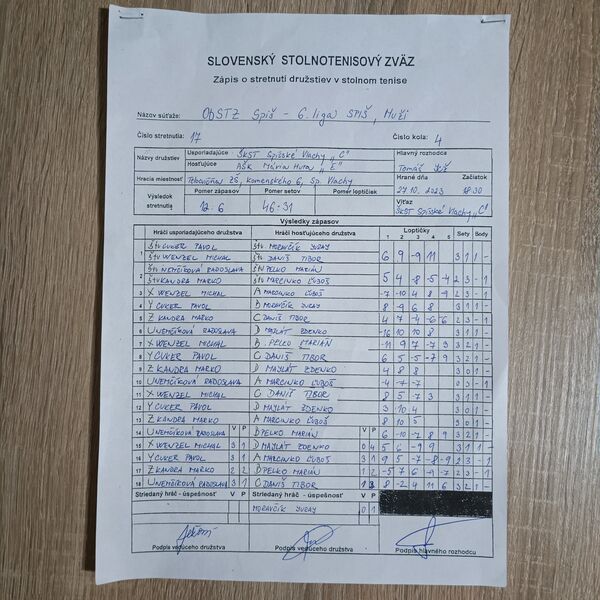 SLOVENSKÝ STOLNOTENISOVÝ ZVÄZ
Zápis o stretnutí družstiev v stolnom tenise
Názov súťaže: ObSTZ Spiš - 6. liga SPIŠ, Muži
Číslo stretnutia: 17 Číslo kola: 4
Názvy družstiev Usporiadajúce ŠKST Spišské Vlachy "C" Hlavný rozhodca
Hosťujúce AŠK Mária Huta "E" Tomáš
Hracia miestnosť Telocvičňa ZŠ, Komenského 6, Sp. Vlachy Hrané dňa Začiatok
27.10.2023 18:30
Výsledok stretnutia Pomer zápasov Pomer setov Pomer loptičiek Víťaz
12:6 46:31 ŠKST Spišské Vlachy "C"
Výsledky zápasov
Hráči usporiadajúceho družstva Hráči hosťujúceho družstva Loptičky Sety Body
1 2 3 4 5
1 Štv CUKER PAVOL Štv MORAVČÍK JURAJ
Štv WENZEL MICHAL Štv DANIŠ TIBOR 6 9 -9 11 3 1 1 -
2 Štv NEMČÍKOVÁ RADOSLAVA Štv PELKO MARIÁN
Štv KANDRA MARKO Štv MARCINKO ĽUBOŠ 5 4 -8 -5 -4 2 3 - 1
3 X WENZEL MICHAL A MARCINKO ĽUBOŠ -7 -10 4 8 9
4 Y CUKER PAVOL B MORAVČÍK JURAJ 8 -9 6 8 3 1 1 -
5 Z KANDRA MARKO C DANIŠ TIBOR 4 7 -4 -6 2 3 - 1
6 U NEMČÍKOVÁ RADOSLAVA D MAJLÁT ZDENKO -16 10 10 8 3 1 1 -
7 X WENZEL MICHAL B PELKO MARIÁN -11 9 7 -7 3 3 2 1 -
8 Y CUKER PAVOL C DANIŠ TIBOR 6 5 -5 -7 9 3 2 1 -
9 Z KANDRA MARKO D MAJLÁT ZDENKO 4 8 8 3 0 1 -
10 U NEMČÍKOVÁ RADOSLAVA A MARCINKO ĽUBOŠ -4 -7 -7 0 3 - 1
11 X WENZEL MICHAL C DANIŠ TIBOR 8 5 -7 3 3 1 1 -
12 Y CUKER PAVOL D MAJLÁT ZDENKO 3 10 4 3 0 1 -
13 Z KANDRA MARKO A MARCINKO ĽUBOŠ 8 10 5 3 0 1 -
14 U NEMČÍKOVÁ RADOSLAVA V P B PELKO MARIÁN V P 6 -10 -7 8 9 3 2 1 -
15 X WENZEL MICHAL 3 1 D MAJLÁT ZDENKO 0 4 5 6 -9 1 3 1 1 -
16 Y CUKER PAVOL 3 1 A MARCINKO ĽUBOŠ 3 1 9 5 -7 -8 -9 2 3 - 1
17 Z KANDRA MARKO 2 2 B PELKO MARIÁN 1 2 -5 7 6 -9 -7 2 3 - 1
18 U NEMČÍKOVÁ RADOSLAVA 3 1 C DANIŠ TIBOR 1 3 8 -2 4 11 6 3 1 -
Striedaný hráč - úspešnosť V P Striedaný hráč - úspešnosť V P
MORAVČÍK JURAJ 0 1
Podpis vedúceho družstva Podpis vedúceho družstva Podpis hlavného rozhodcu